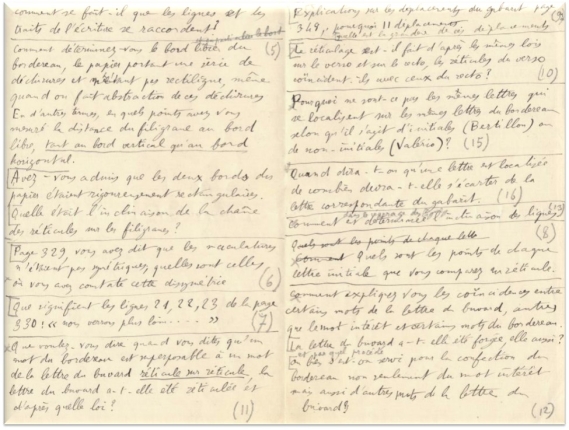 comment se fait-il que les lignes et les
traits de l'écriture se raccordent?
Comment déterminez-vous le bord libre du (5)
bordereau, le papier portant une série de
déchirures et n'étant pas rectiligne, même
quand on fait abstraction de ces déchirures
En d'autres termes, en quels points avez vous
mesuré la distance du filigrane au bord
libre, tant au bord vertical qu'au bord
horizontal.
Avez-vous admis que les deux bords des
papier étaient rigoureusement rectangulaires.
Quelle était l'inclinaison de la chaîne
des réticules sur les filigranes?
Page 329, vous avez dit que les
n'étaient pas symétriques, quelles sont celles
où vous avez constaté cette disymétrie (6)
Que signifient les lignes 21, 22, 23 de la page
330: « nous verrons plus loin..... » (7)
Que voulez-vous dire quand vous dites qu'un
mot du bordereau est superposable à un mot
de la lettre du buvard réticule sur réticule, la
lettre du buvard a-t-elle été réticulée et
d'après quelle loi? (11)
Explications sur les déplacements du gabarit page
349, pourquoi 11 déplacements (9)
de ces déplacements
Le réticulage est-il fait d'après les mêmes lois
sur le verso et sur le recto, les réticules du verso
coïncident-ils avec ceux du recto? (10)
Pourquoi ne sont-ce pas les mêmes lettres qui
se localisent sur les mêmes lettres du bordereau
selon qu'il s'agit d'initiales (Bertillon) ou
de non-initiales (Valério)? (15)
Quand dira-t-on qu'une lettre est localisée
de combien devra-t-elle s'écarter de la
lettre correspondante du gabarit. (16)
Comment est déterminée l'inclinaison des lignes (13)
Quels sont les points de chaque lettre (8)
Comment Quels sont les points de chaque
lettre initiale que vous comparez au réticule.
Comment expliquez vous les coïncidences entre
certains mots de la lettre du buvard, autres
que le mot intérêt et certains mots du bordereau.
La lettre du buvard a-t-elle été forgée, elle aussi?
ou bien s'est-on servi pour la confection du
bordereau non seulement du mot intérêt
mais aussi d'autres mots de la lettre du
buvard? (12)